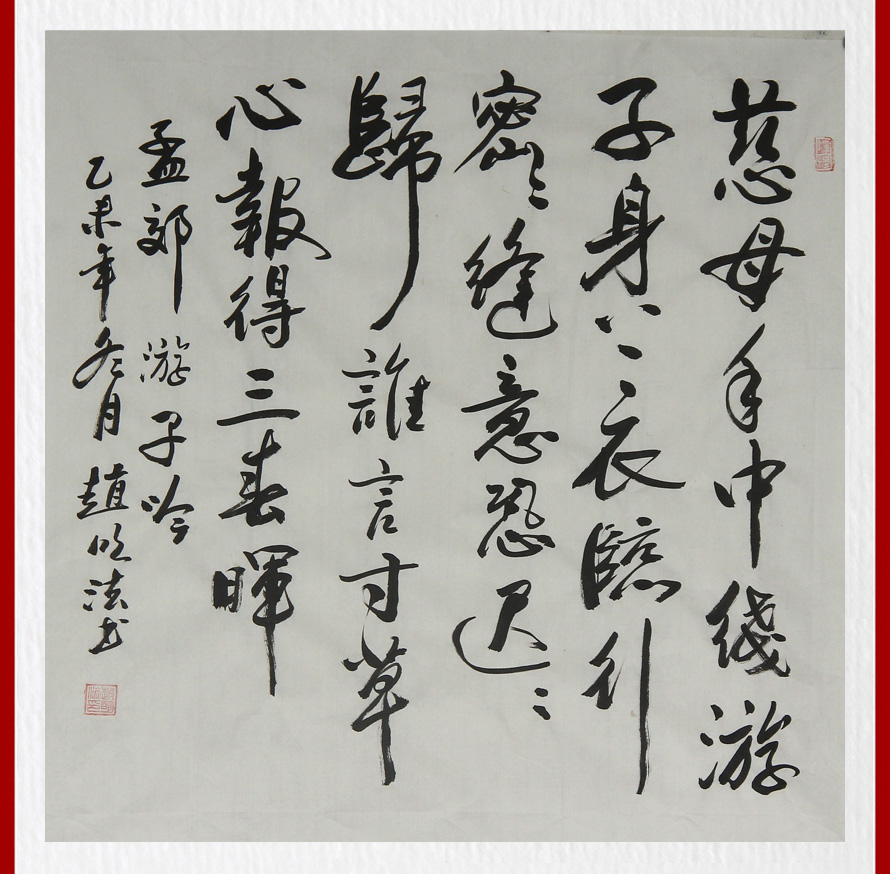 慈母手中綫游
子身上衣臨行
密々縫意恐迟々
歸誰言寸草
心報得三春暉
孟郊游子吟
乙未年冬月趙明法书